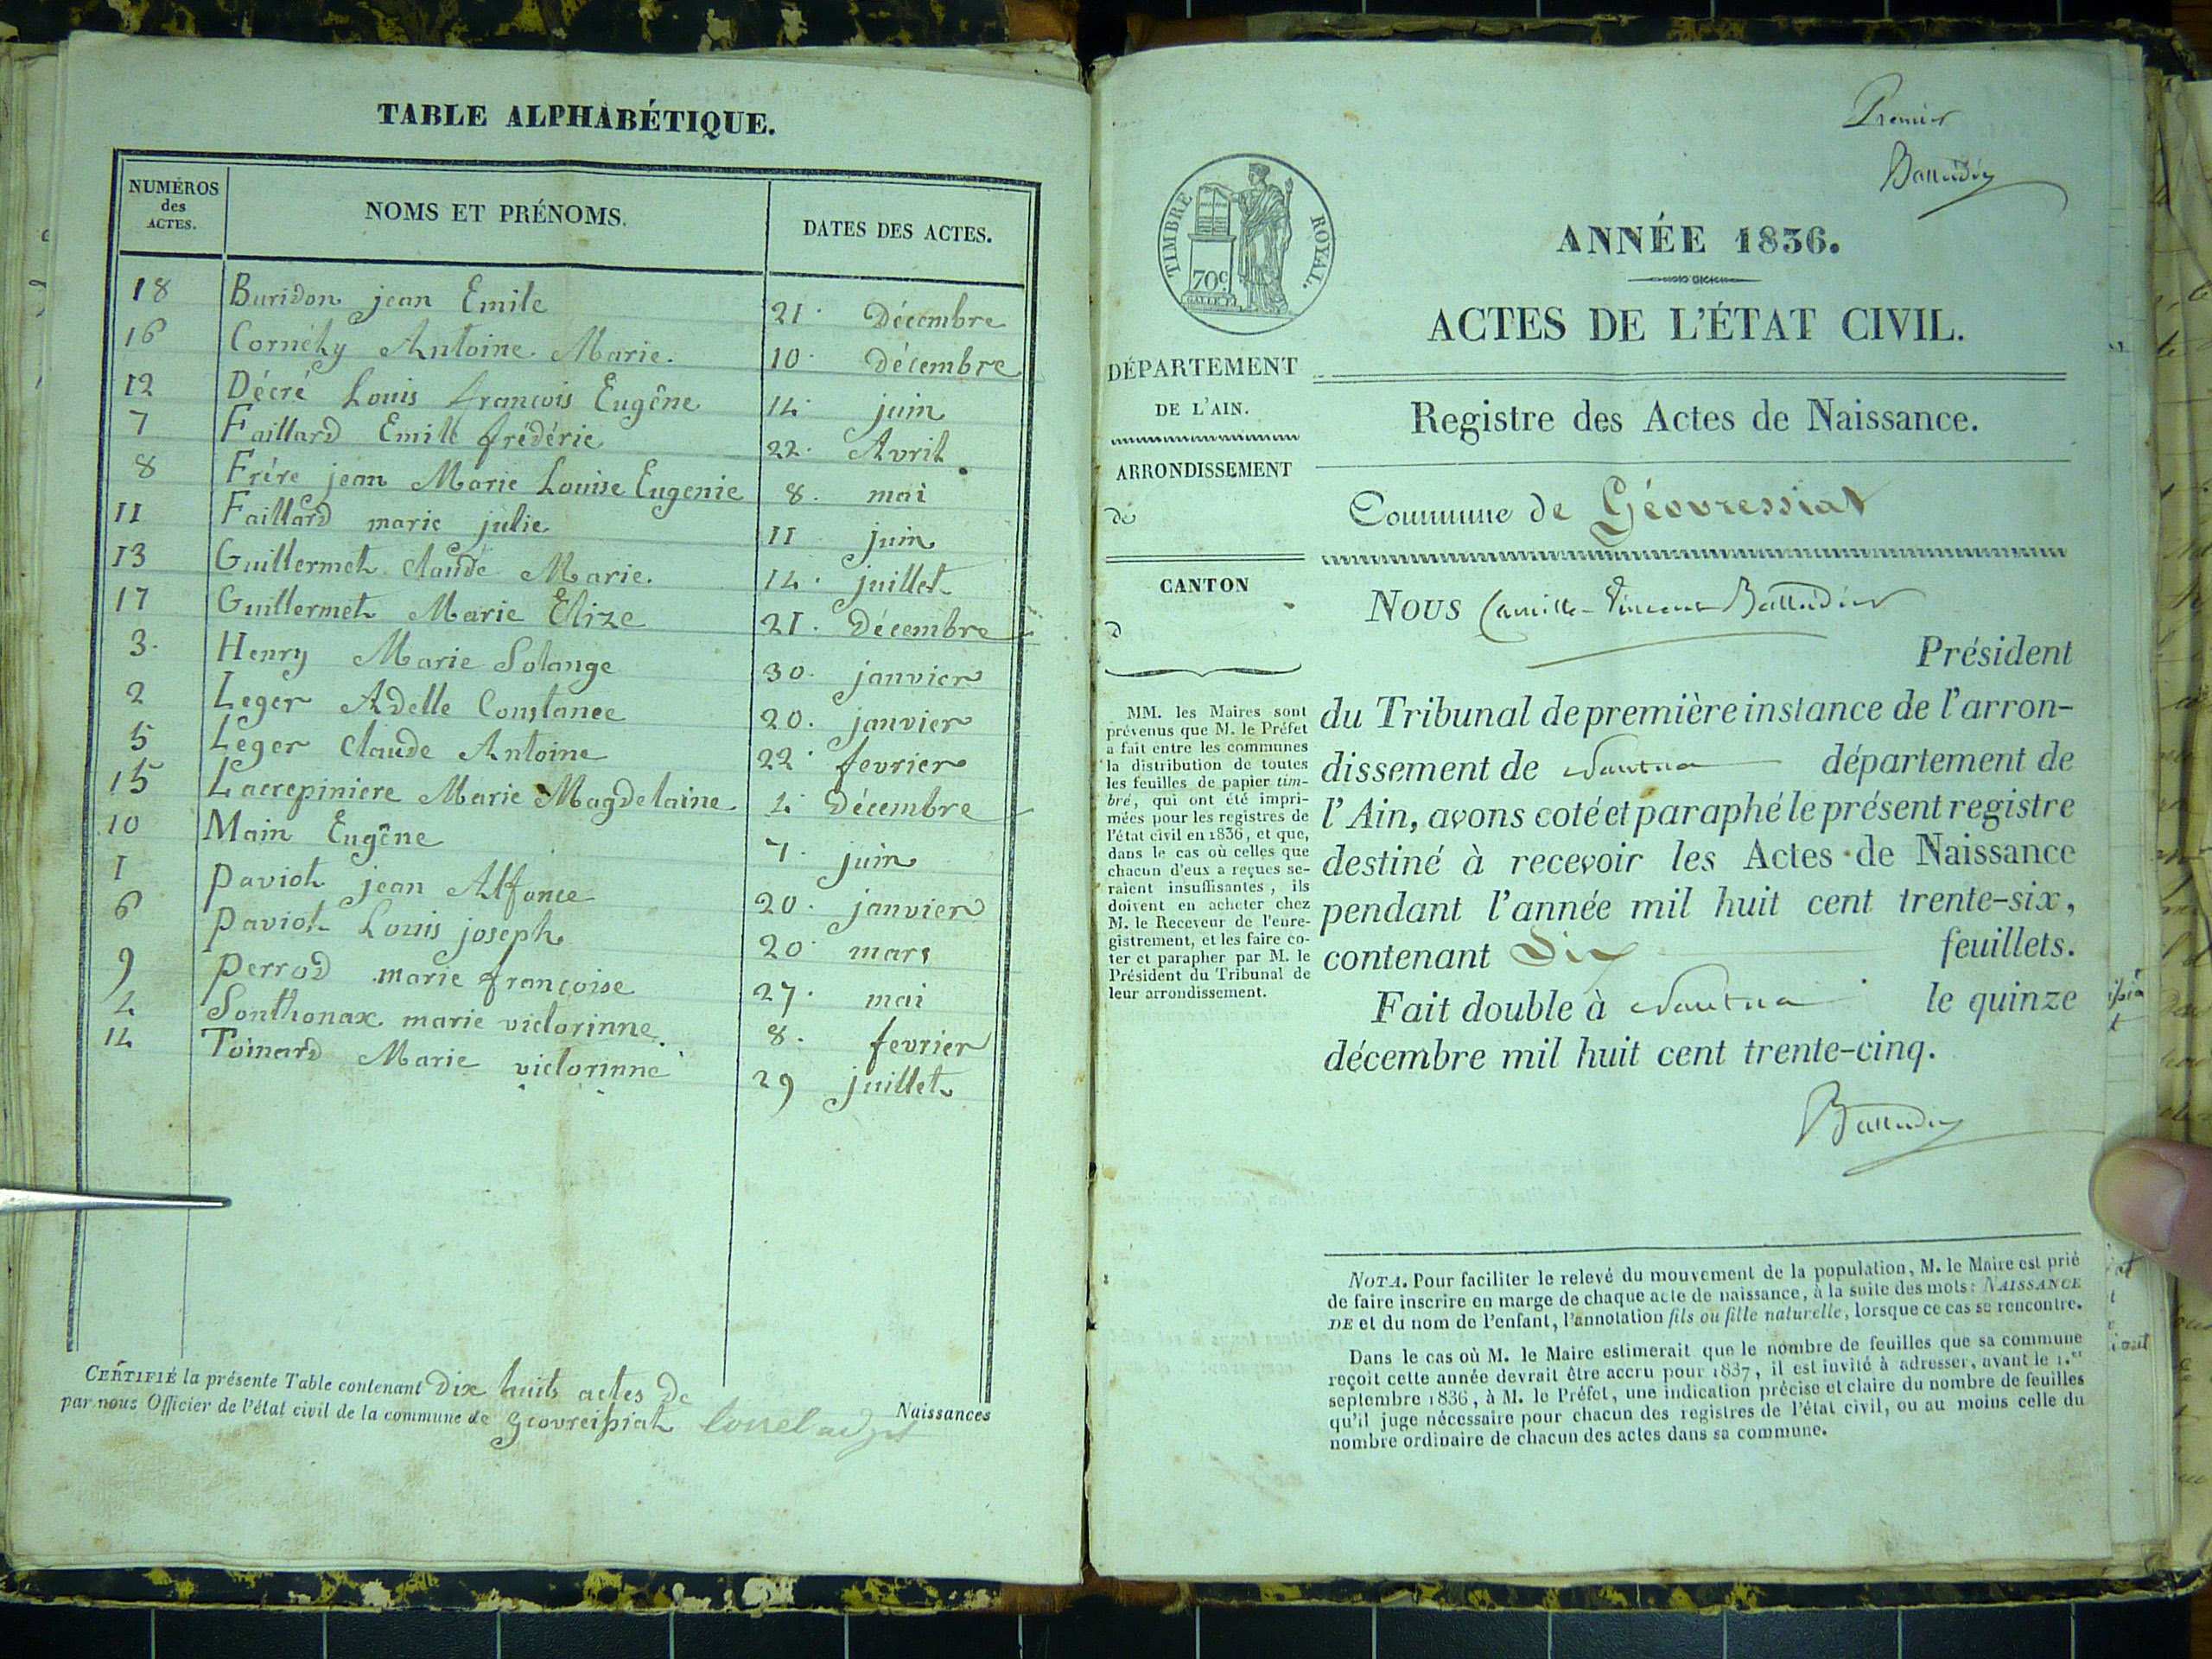 TABLE ALPHABÉTIQUE.
NUMÉROS des ACTES. NOMS ET PRÉNOMS. DATES DES ACTES.
18 Buridon jean Emile 21. Décembre
16 Cornély Antoine Marie. 10. décembre
12 Décré Louis françois Eugêne 14. juin
7 Faillard Emile frédéric 22. Avril
8 Frére jean Marie Louise Eugenie 8. mai
11 Faillard marie julie 11 juin
13 Guillermet Claude Marie. 14. juillet
17 Guillermet Marie Elize 21. Décembre
3. Henry Marie Solange 30. janvier
2 Leger Adelle Constance 20. janvier
5 Leger Claude Antoine 22. fevrier
15 Lacrepiniere Marie Magdelaine 4. Décembre
10 Main Eugêne 7. juin
1 paviot jean Alfonce 20. janvier
6 paviot Louis joseph 20. mars
9 perrod marie françoise 27. mai
4 Sonthonax marie victorinne. 8. fevrier
14 Toinard Marie victorinne 29 juillet
CERTIFIÉ la présente Table contenant Dix huit actes de Naissances
par nous Officier de l'état civil de la commune de geovreissiat
Premier
Balladier
TIMBRE ROYAL.
70c.
ANNÉE 1836.
ACTES DE L'ÉTAT CIVIL.
Registre des Actes de Naissance.
Commune de Géovressiat
DÉPARTEMENT
DE L'AIN.
ARRONDISSEMENT
de
CANTON
d
MM. les Maires sont
prévenus que M. le Préfet
a fait entre les communes
la distribution de toutes
les feuilles de papier tim-
bré, qui ont été impri-
mées pour les registres de
l'état civil en 1836, et que,
dans le cas où celles que
chacun d'eux a reçues se-
raient insuffisantes, ils
doivent en acheter chez
M. le Receveur de l'enre-
gistrement, et les faire co-
ter et parapher par M. le
Président du Tribunal de
leur arrondissement.
Nous Camille-Vincent Balladier
Président
du Tribunal de première instance de l'arron-
dissement de Nantua département de
l'Ain, avons coté et paraphé le présent registre
destiné à recevoir les Actes de Naissance
pendant l'année mil huit cent trente-six,
contenant Six feuillets.
Fait double à Nantua le quinze
décembre mil huit cent trente-cinq.
Balladier
NOTA. Pour faciliter le relevé du mouvement de la population, M. le Maire est prié
de faire inscrire en marge de chaque acte de naissance, à la suite des mots: NAISSANCE
DE et du nom de l'enfant, l'annotation fils ou fille naturelle, lorsque ce cas se rencontre.
Dans le cas où M. le Maire estimerait que le nombre de feuilles que sa commune
reçoit cette année devrait être accru pour 1837, il est invité à adresser, avant le 1.er
septembre 1836, à M. le Préfet, une indication précise et claire du nombre de feuilles
qu'il juge nécessaire pour chacun des registres de l'état civil, ou au moins celle du
nombre ordinaire de chacun des actes dans sa commune.